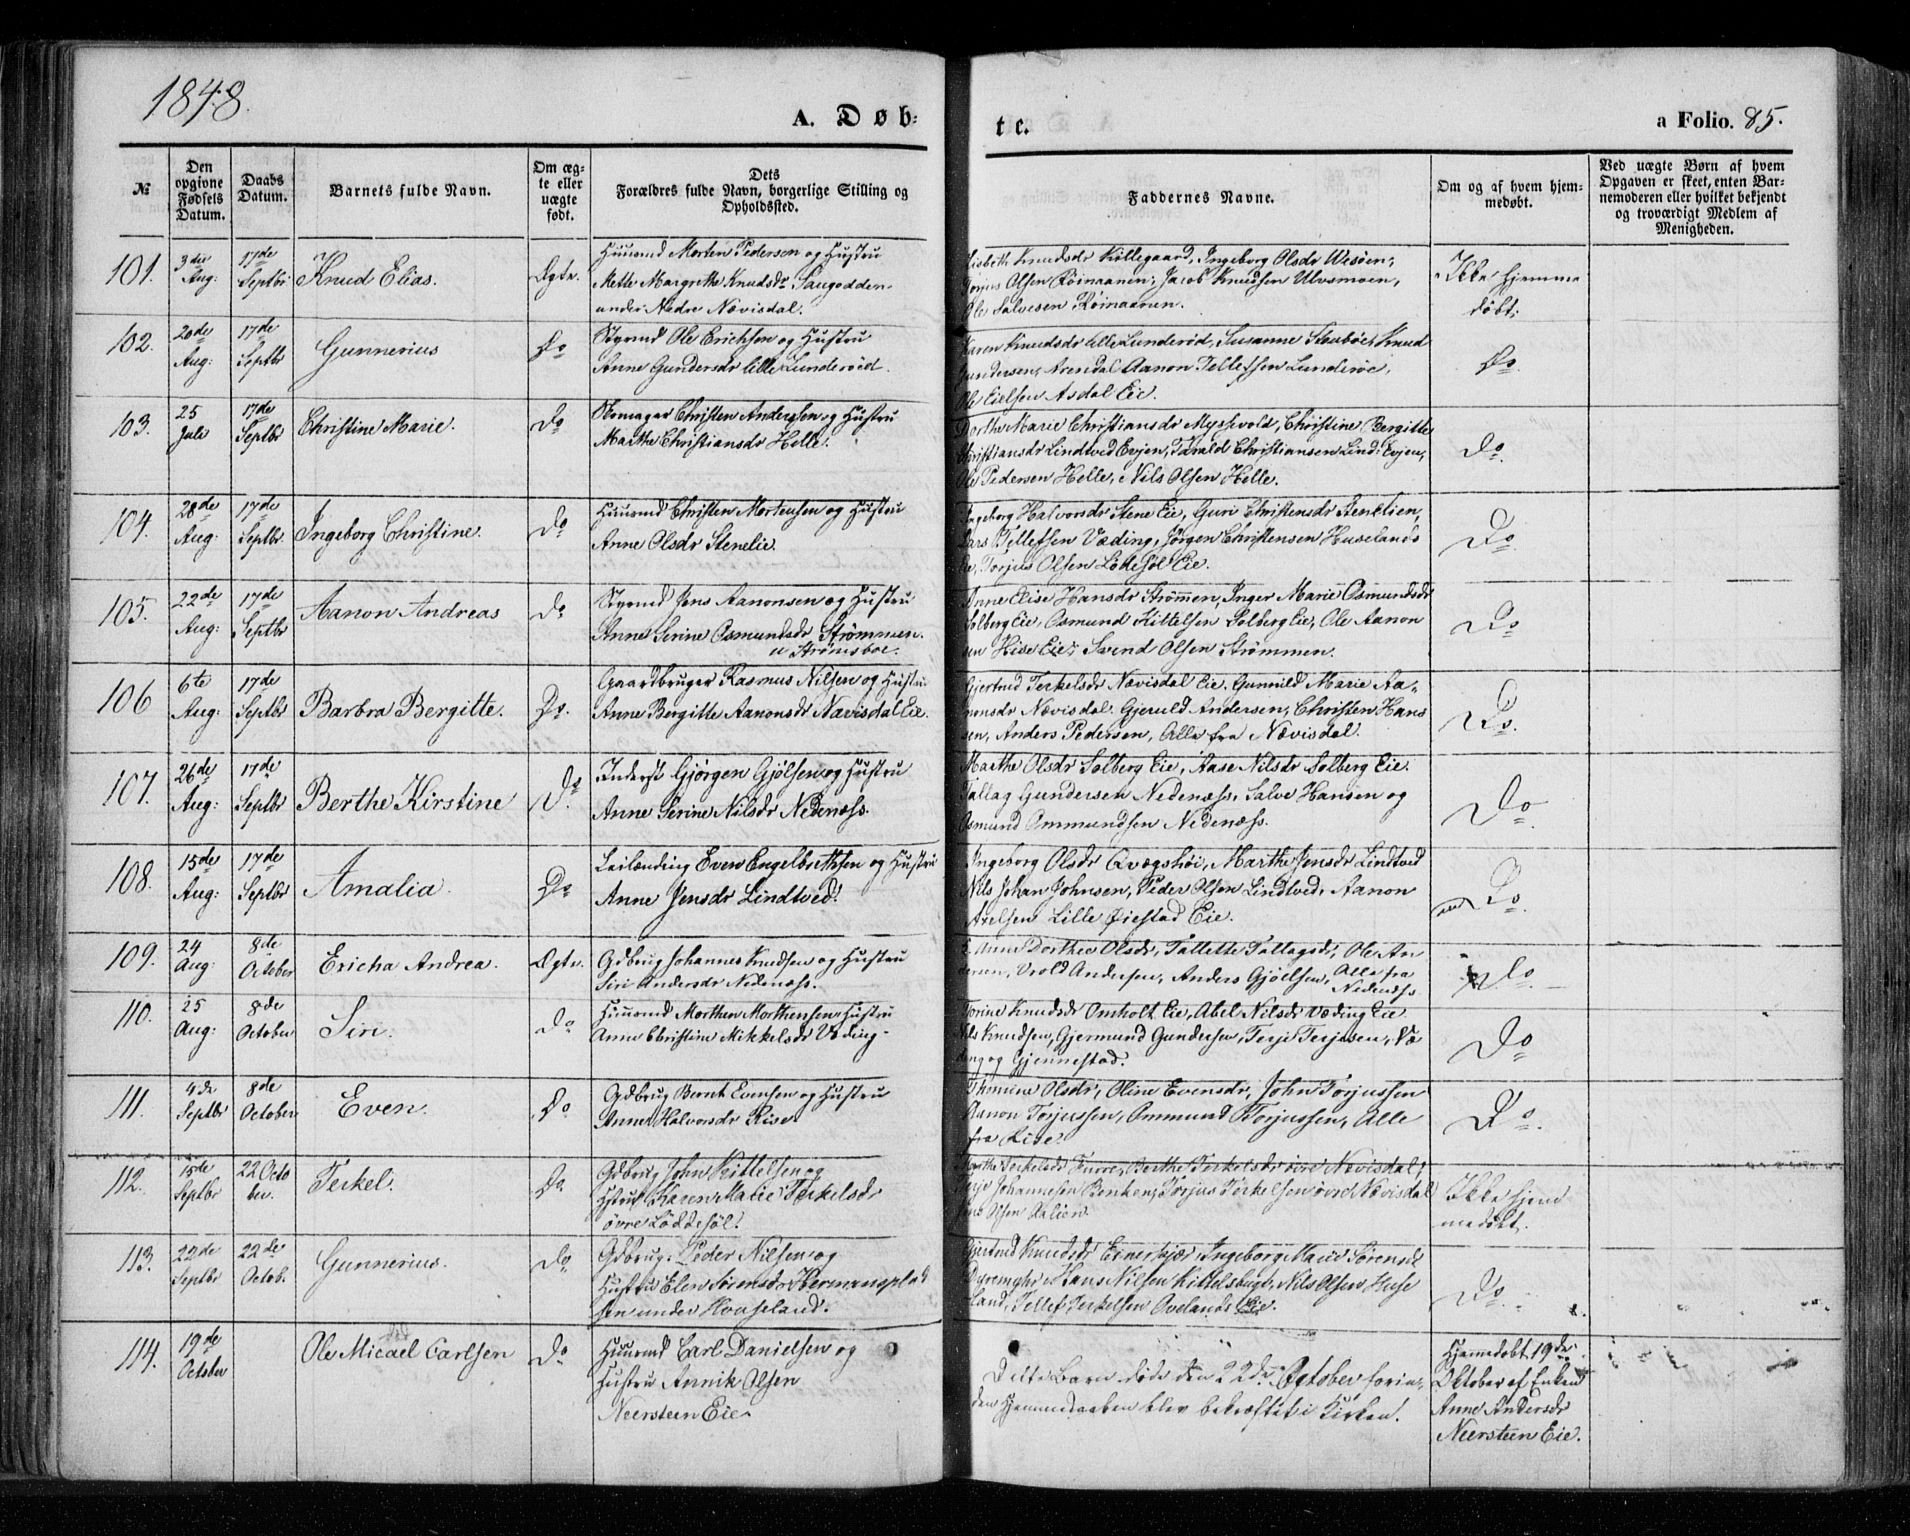 1848.
A. Døb=
te.
a Folio. 85.
№
Den opgivne Fødsels Datum.
Daabs Datum.
Barnets fulde Navn.
Om ægte eller uægte født.
Dets
Forældres fulde Navn, borgerlige Stilling og Opholdssted.
Faddernes Navne.
Om og af hvem hjemmedøbt.
Ved uægte Børn af hvem Opgaven er skeet, enten Barnemoderen eller hvilket bekjendt og troværdigt Medlem af Menigheden.
101. 3die Aug: 17de Septbr Knud Elias. Ægte.
Huusmd Morten Pedersen og Hustru
Mette Margrethe Knudsdr Saugodden
under Nedre Nævisdal.
Lisbeth Knudsdr Killegaard, Ingeborg Olsdr Wesøen,
Torjus Olsen Røinaanen, Jacob Knudsen Ulvsmoen,
Ole Salvesen Røinaanen.
Ikke hjemme
døbt.
102. 20de Aug: 17de Septbr Gunnerius Do
Styrmd Ole Erichsen og Hustru
Anne Gundersdr lille Lunderød.
Karen Knudsdr lille Lunderød, Susanne Knud
Gundersen, Arendal Aanon Tellefsen Lunderøe,
Ole Eielsen Asdal Eie.
Do.
103. 25 Juli 17de Septbr Christine Marie. Do
Skomager Christen Andersen og Hustru
Marthe Christiansdr Helle.
Dorthe Marie Christiansdr Myssevold, Christine Bergitte
Christiansdr Lindtved Evjen, Tarald Christiansen Lind. Evjen,
Ole Pedersen Helle, Nils Olsen Helle.
Do.
104. 28de Aug: 17de Septbr. Ingeborg Christine. Do
Huusmd Christen Mortensen og Hustru
Anne Olsdr Stenelie.
Ingeborg Halvorsdr Stene Eie, Guri Christensdr
Lars Tellefsen Væding, Jørgen Christensen Huselands
Eie, Torjus Olsen Lødesøl Eie.
Do.
105. 22de Aug: 17de Septbr Aanon Andreas Do
Styrmd Jens Aanonsen og Hustru
Anne Serine Osmundsdr Strømmen
u Strømsboe.
Anne Elise Hansdr Strømen, Inger Marie Osmundsdr
Solberg Eie, Osmund Kittelsen Solberg Eie, Ole Aanon
sen Hise Eie, Svend Olsen Strømmen.
Do
106 6te Aug: 17de Septbr Barbra Bergitte. Do.
Gaardbruger Rasmus Nilsen og Hustru
Anne Bergitte Aanonsdr Nævisdal Eie.
Gjertrud Terkelsdr Nævisdal Eie. Gunnild Marie Aa-
nonsdr Nævisdal. Gjeruld Andersen, Christen Hans
sen, Anders Pedersen, Alle fra Nævisdal.
Do.
107. 26de Aug: 17de Septbr Berthe Kirstine Do.
Inderst Gjørgen Gjølsen og Hustru
Anne Serine Nilsdr Nedenæss.
Marthe Olsdr Solberg Eie, Aase Nilsdr Solberg Eie.
Tallag Gundersen Nedenæss, Salve Hansen og
Osmund Ommundsen Nedenæss.
Do
108. 15de Aug: 17de Septbr Amalia. Do
Leilænding Even Engelbrethsen og Hustru
Anne Jensdr Lindtved.
Ingeborg Olsdr Qvægshøi, Marthe Jensdr Lindtved
Nils Johan Johnsen, Peder Olsen Lindtved, Aanon
Axelsen Lille Øiestad Eie.
Do.
109. 24 Aug: 8de October Ericha Andrea. Ægte.
Gdbrug Johannes Knudsen og Hustru
Siri Andersdr Nedenæss.
Anne Dorthea Olsdr, Tallette Tallagsdr, Ole An
dersen, Vrold Andersen, Anders Gjølsen, Alle fra
Nedenæss
Do.
110. 25 Aug: 8de October Siri. Do
Huusmd Morthen Morthensen, Hustru
Anne Christine Mikkelsdr Væding.
Torine Knudsdr Omholt Eie, Abel Nilsdr Væding Eie
Nils Knudsen, Gjermund Gundersen, Terje Terjesen, Væ
ding og Gjennestad.
Do
111. 4de Septbr 8de October Even. Do
Gdbrug Bernt Evensen og Hustru
Anne Halvorsdr Rise.
Thomine Olsdr, Oline Evensdr, John Torjussen
Aanon Torjussen, Ommund Torjussen, Alle
fra Rise.
Do.
112. 15de Septbr 22 Octo
ber. Terkel. Do
Gdbrug John Kittelsen og
Hstru Karen Marie Terkelsdr
øvre Løddesøl.
Marthe Terkelsdr Furre, Berthe Terkelsdr øvre Nævisdal,
Terje Johannesen Benken, Torjus Terkelsen øvre Nævisdal
Jens Olsen Dalien.
Ikke hjem
medøbt.
113. 22de Septbr 22de Octob. Gunnerius. Do
Gdbrug: Peder Nilsen og
Hustru Elen Sørensdr Hermansplad
sen under Houseland.
Gjertrud Knudsdr Einerkjær, Ingeborg Marie Sørensdr
Dyremyhr Hans Nilsen Kittelsbugt, Nils Olsen Huse
land, Tellef Terkelsen Ovelands Eie.
Do.
114. 19de October Ole Micael Carlsen Do
Huusmd Carl Danielsen og
Hustru Annik Olsen
Neersteen Eie.
Dette Barn døde den 22de October forin,
den Hjemmedaaben blev bekræftet i Kirken.
Hjemedøbt 19de
Oktober af Enken
Anne Andersdr
Neersteen Eie.